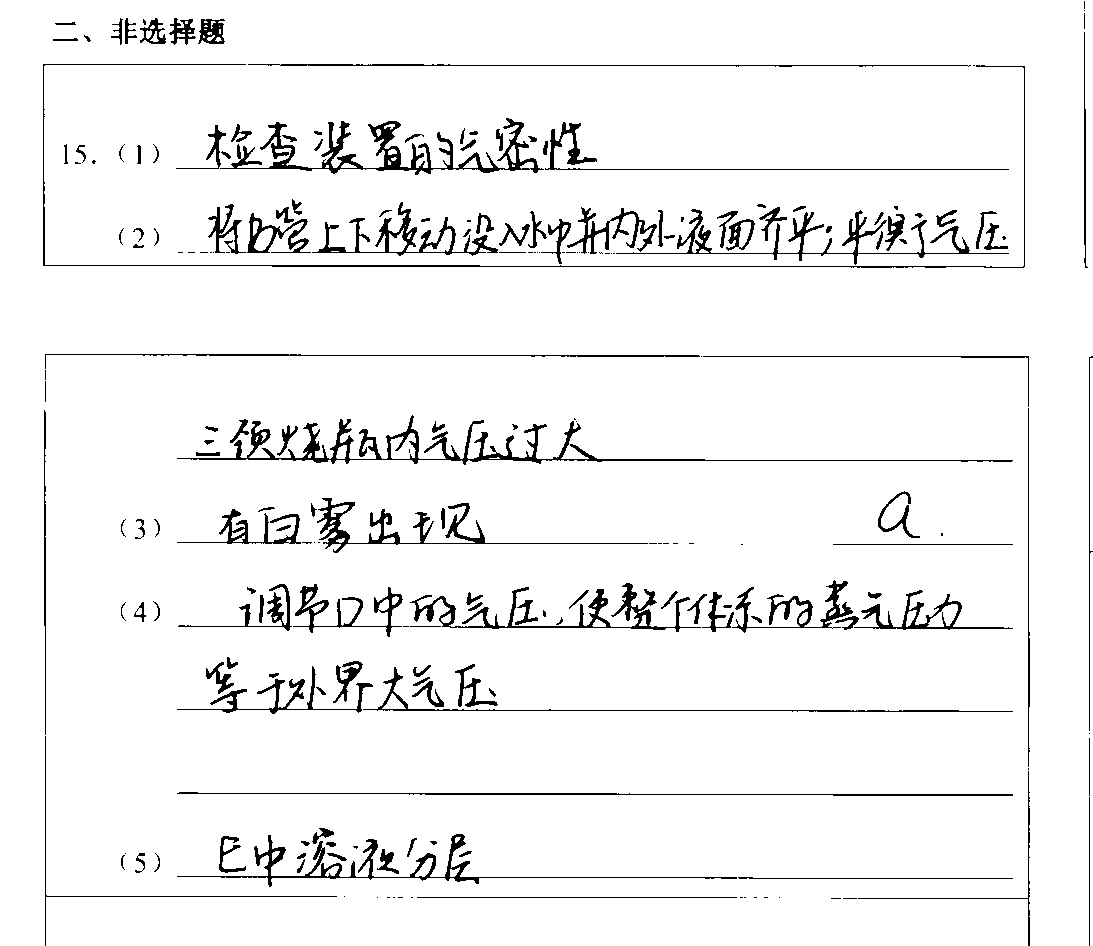 二、非选择题
15.（1） 检查装置的气密性
（2） 将b管上下移动没入水中并内外液面齐平；平衡气压
三颈烧瓶内气压过大
（3） 有白雾出现 a.
（4） 调节D中的气压，使整个体系的蒸元压力
等于外界大气压
（5） E中溶液分层